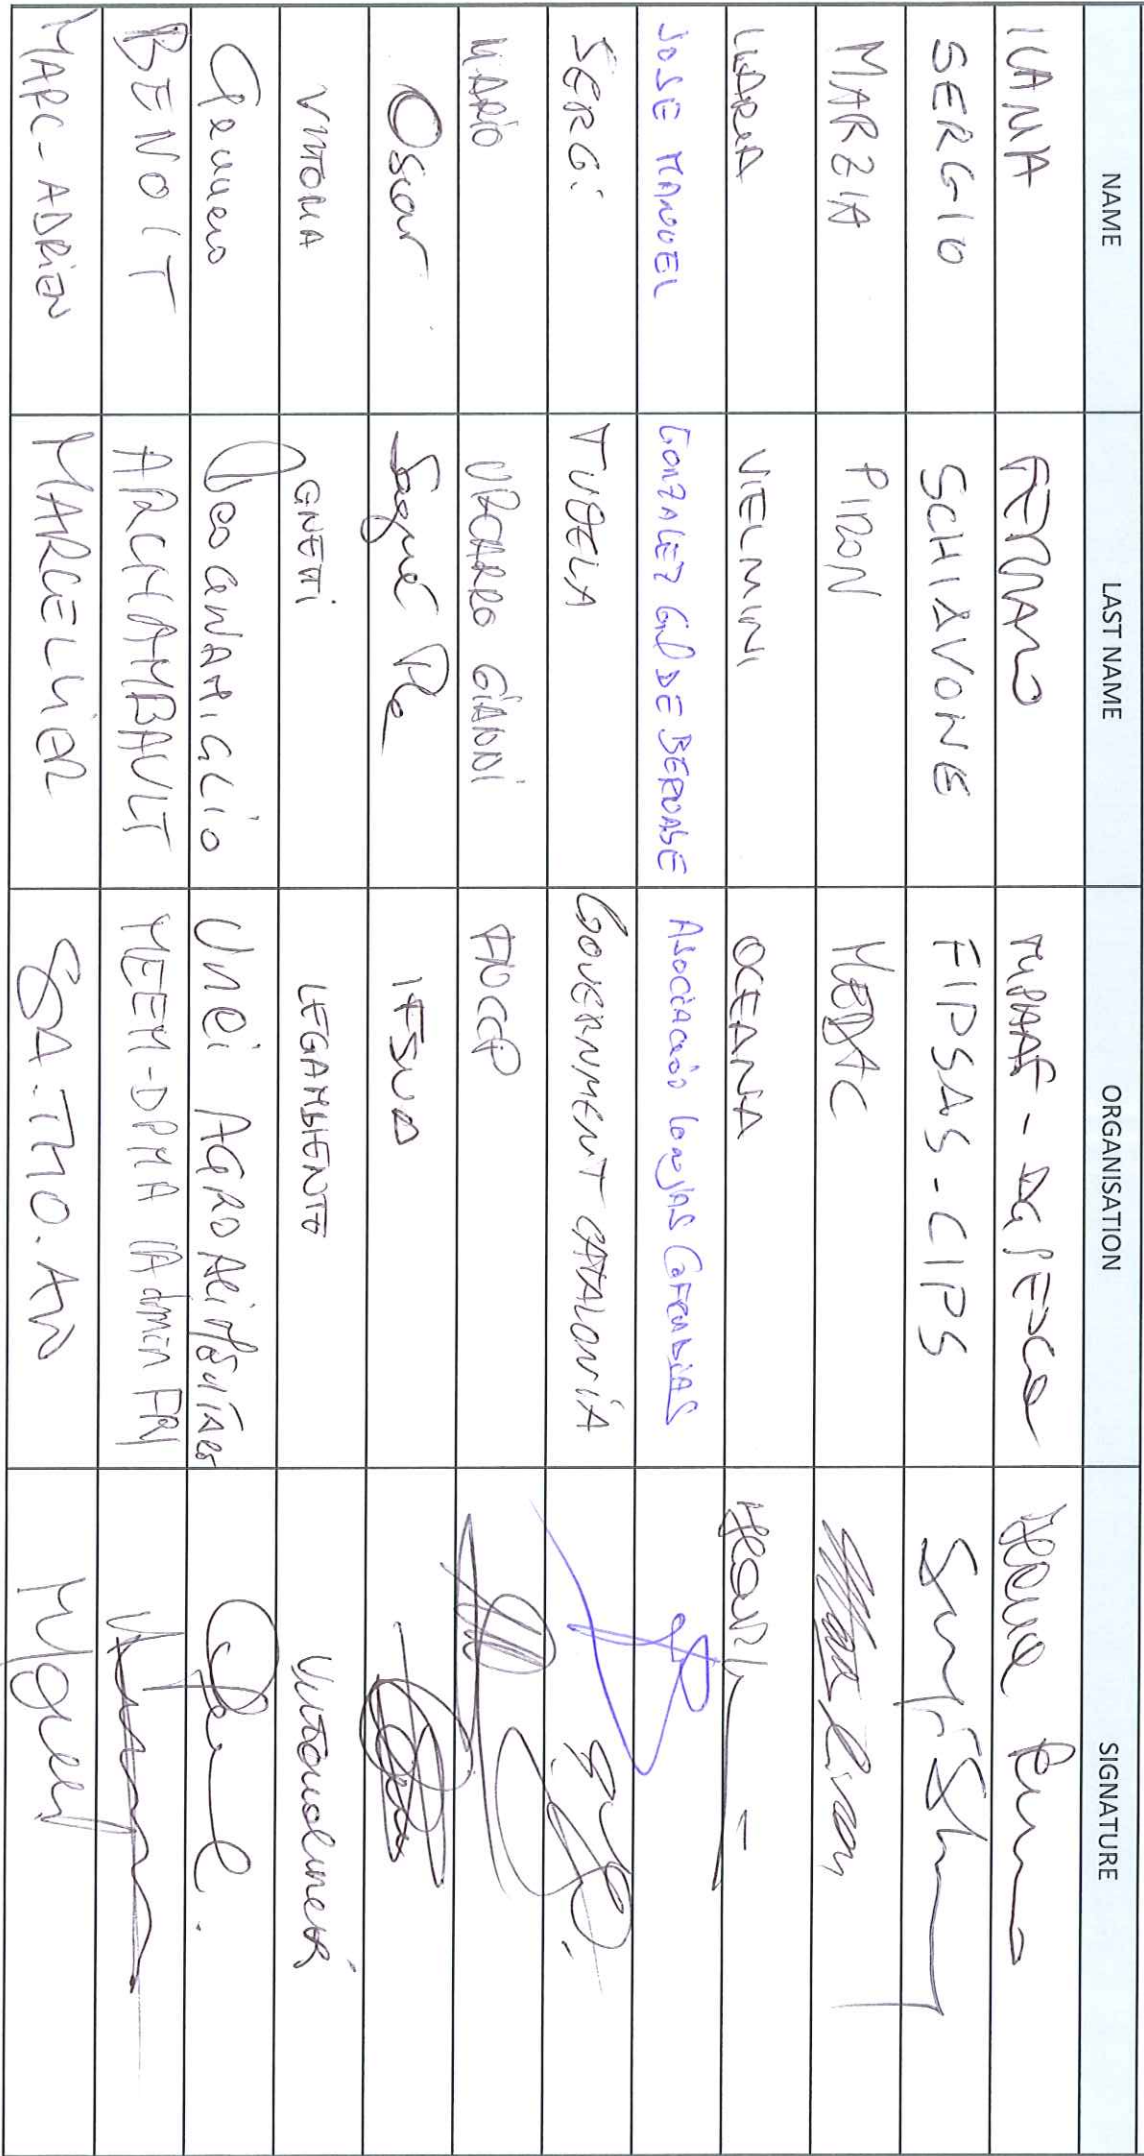 NAME LAST NAME ORGANISATION SIGNATURE
ILARIA FERRARO MIPAAF - DG PESCA
SERGIO SCHIAVONE FIPSAS-CIPS
MARZIA PIRON MEDAC
ILARIA VIELMINI OCEANA
JOSE MANUEL GONZALEZ Gil DE BERNABE Asociación lonjas
SERGI TUDELA GOVERNMENT CATALONIA
MARIO VIZCARRO GIANNI FNCCP
Oscar Sagué Pla IFSUA
VITTORIA GNETTI LEGAMBIENTE
Gennaro Scognamiglio Unci AGROALIMENTARE
BENOIT ARCHAMBAULT MEEM-DPMA (Admin FR)
MARC-ADRIEN MARCELLIER SA.THO.AN